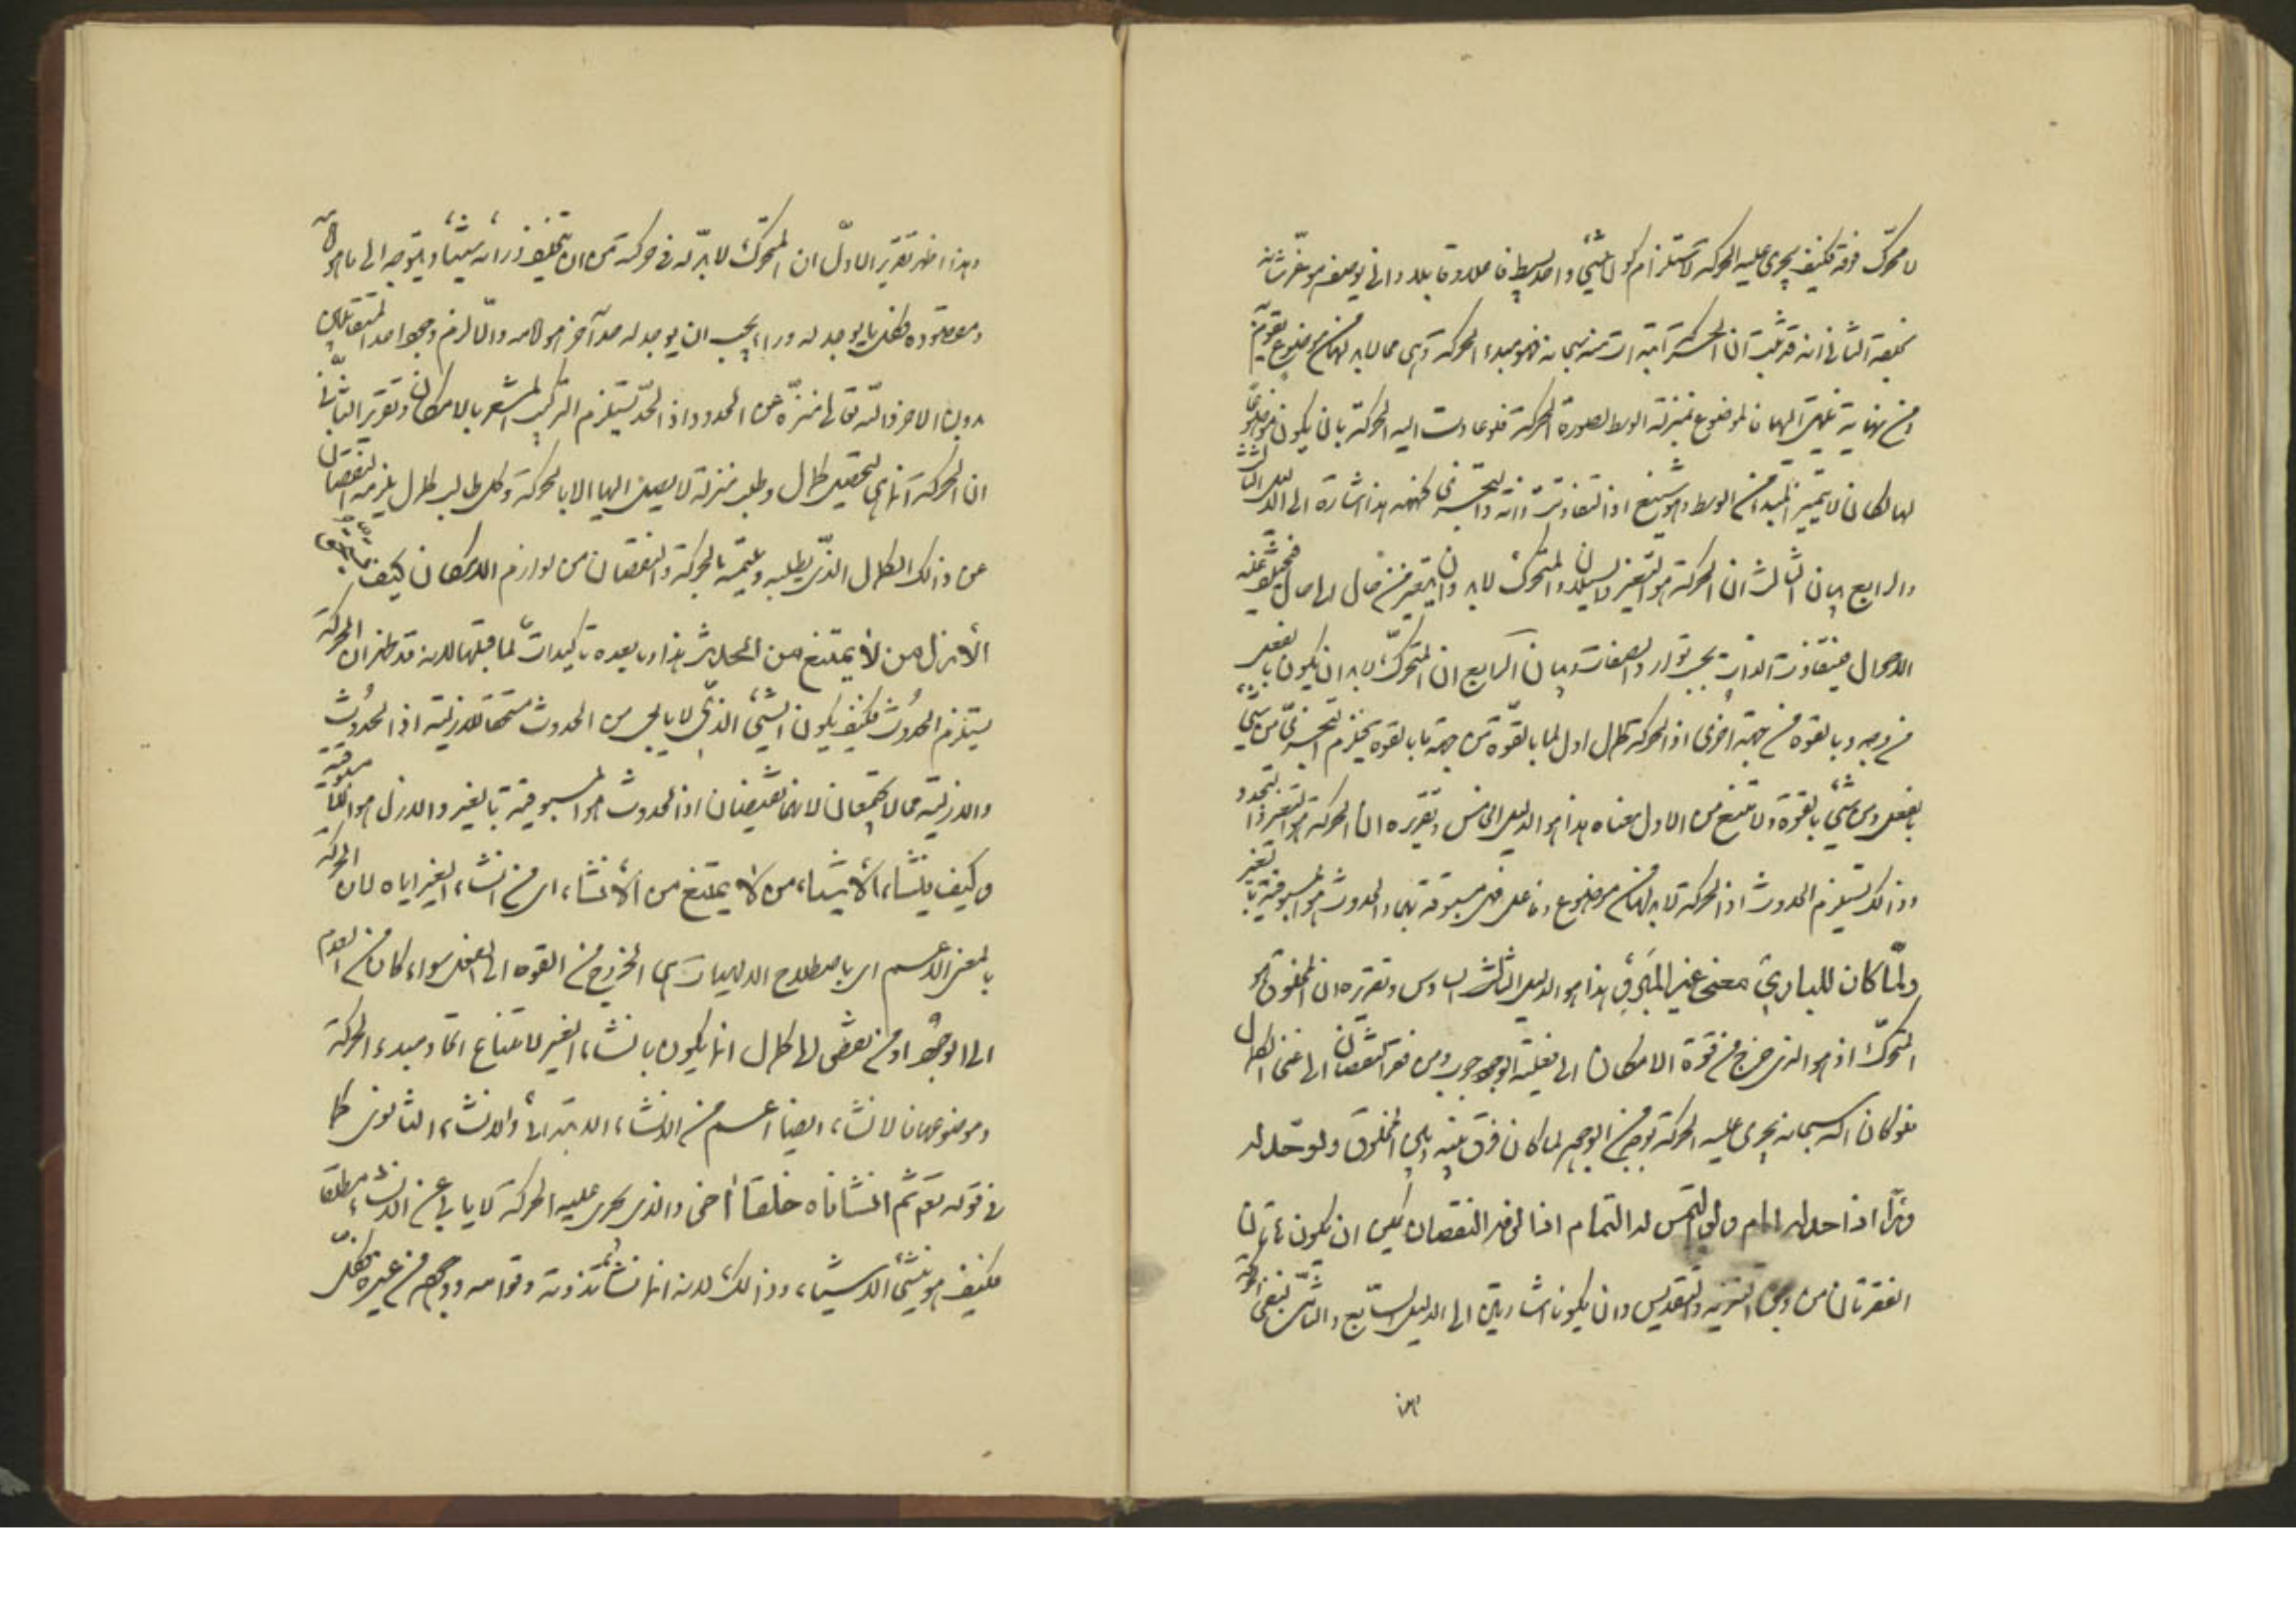 لا محرّك فوقه فكيف يجرى عليه الحركة لاستلزام كون الشيء واحد بسيط فاعلا وقابلا وانى يوصف هو بغير شانه
بخلقه الثانى انه قد ثبت ان الحركة ابتدات منه سبحانه فهو مبدء الحركة وهى مما لابد لها من موضوع يقوم
ومن نهاية تنتهى اليها فالموضوع بمنزلة الوسط لصورة الحركة فلو عادت اليه الحركة بان يكون موضوعا
لها لكان لا يتميز المبدا من الوسط وهو شنيع اذا لتفاوتت ذاته ولتجزى كنهه هذا اشارة الى الدليل الثالث
والرابع بيان الثالث ان الحركة هو التغير والسيلان والمتحرك لابد وان يتغير من حال الى حال فيختلف عليه
الاحوال فيتفاوت الذات بحسب توارد الصفات وبيان الرابع ان المتحرك لابد ان يكون بالفعل
من وجه وبالقوة من جهة اخرى اذ الحركة كمال اول لما بالقوة من جهة ما بالقوة فيلزم التجزى من شيء
بالفعل ومن شيء بالقوة ولامتنع من الاول معناه هذا هو الدليل الخامس وتقريره ان الحركة هو التغير والتجدد
وذالك يستلزم الحدوث اذ الحركة لابد لها من موضوع وفاعل فهى مسبوقة بهما والحدوث هو المسبوقية بالغير
ولمّا كان للبارئ معنى غير المبروء هذا هو الدليل السادس وتقريره ان المخلوق هو
المتحرك اذ هو الذى خرج من قوة الامكان الى فعلية الوجوب ومن فقر النقصان الى غنى الكمال
فلو كان الله سبحانه يجرى عليه الحركة بوجه من الوجوه لما كان فرق بينه وبين المخلوق ولو حدّ له
وراء اذا حد له امام ولو التمس له التمام اذا لزمه النقصان يمكن ان يكون هاتان
الفقرتان من وجوه التنزيه والتقديس وان يكونا اشارتين الى الدليل السابع والثامن لنفى الحركة
وهذا اظهر تقرير الاول ان المتحرك لابد له فى حركته من ان يتخلف وراءه شيئا ويتوجه الى ما هو امامه
ومقصوده فكل ما يوجد له وراء يجب ان يوجد له حد آخر هو امامه والا لزم وجود احد المتقابلين
دون الاخر والله تعالى منزّه عن الحدود اذ الحدّ يستلزم التركيب المشعر بالامكان وتقرير الثانى
ان الحركة انما هى لتحصيل كمال وطلب منزلة لا يصل اليها الا بالحركة وكل طالب كمال يلزمه النقصان
عن ذالك الكمال الذى يطلبه ويلتمسه بالحركة والنقصان من لوازم الامكان كيف يستحق
الأزل من لا يمتنع من الحدث هذا وما بعده تاكيدات لما قبلها لانه قد ظهر ان الحركة
يستلزم الحدوث فكيف يكون الشيء الذى لا يابى من الحدوث مستحقا للازلية اذ الحدوث
والازلية مما لا يجتمعان لانهما نقيضان اذ الحدوث هو المسبوقية بالغير والازل هو اللامسبوقية
وكيف ينشئ الأشياء من لا يمتنع من الأنشاء اى من انشاء الغير اياه لان الحركة
بالمعنى الاعم اى باصطلاح الالهيات هى الخروج من القوة الى الفعل سواء كان من العدم
الى الوجود او من نقص الى كمال انما يكون بانشاء الغير لامتناع اتحاد مبدء الحركة
وموضوعها فالانشاء ايضا اعم من الانشاء الابتدائى والانشاء الثانوى كما
فى قوله تعم ثم انشاناه خلقا أخر والذى يجرى عليه الحركة لا يابى عن الانشاء مطلقا
فكيف هو ينشئ الاشياء وذالك لانه انما نشا تذوته وقوامه ووجوده من غيره فكل